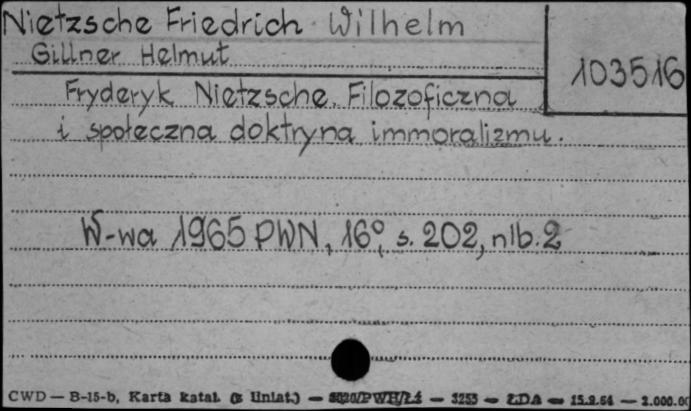 Nietzsche Friedrich Wilhelm
Gillner Helmut
103516
Fryderyk Nietzsche. Filozoficzna
i społeczna doktryna immoralizmu.
W-wa 1965 PWN, 16°, s. 202, nlb. 2
CWD — B-15-b, Karta katal. (z liniat.) — — 3253 — ŁDA — 15.2.64 — 2.000.00